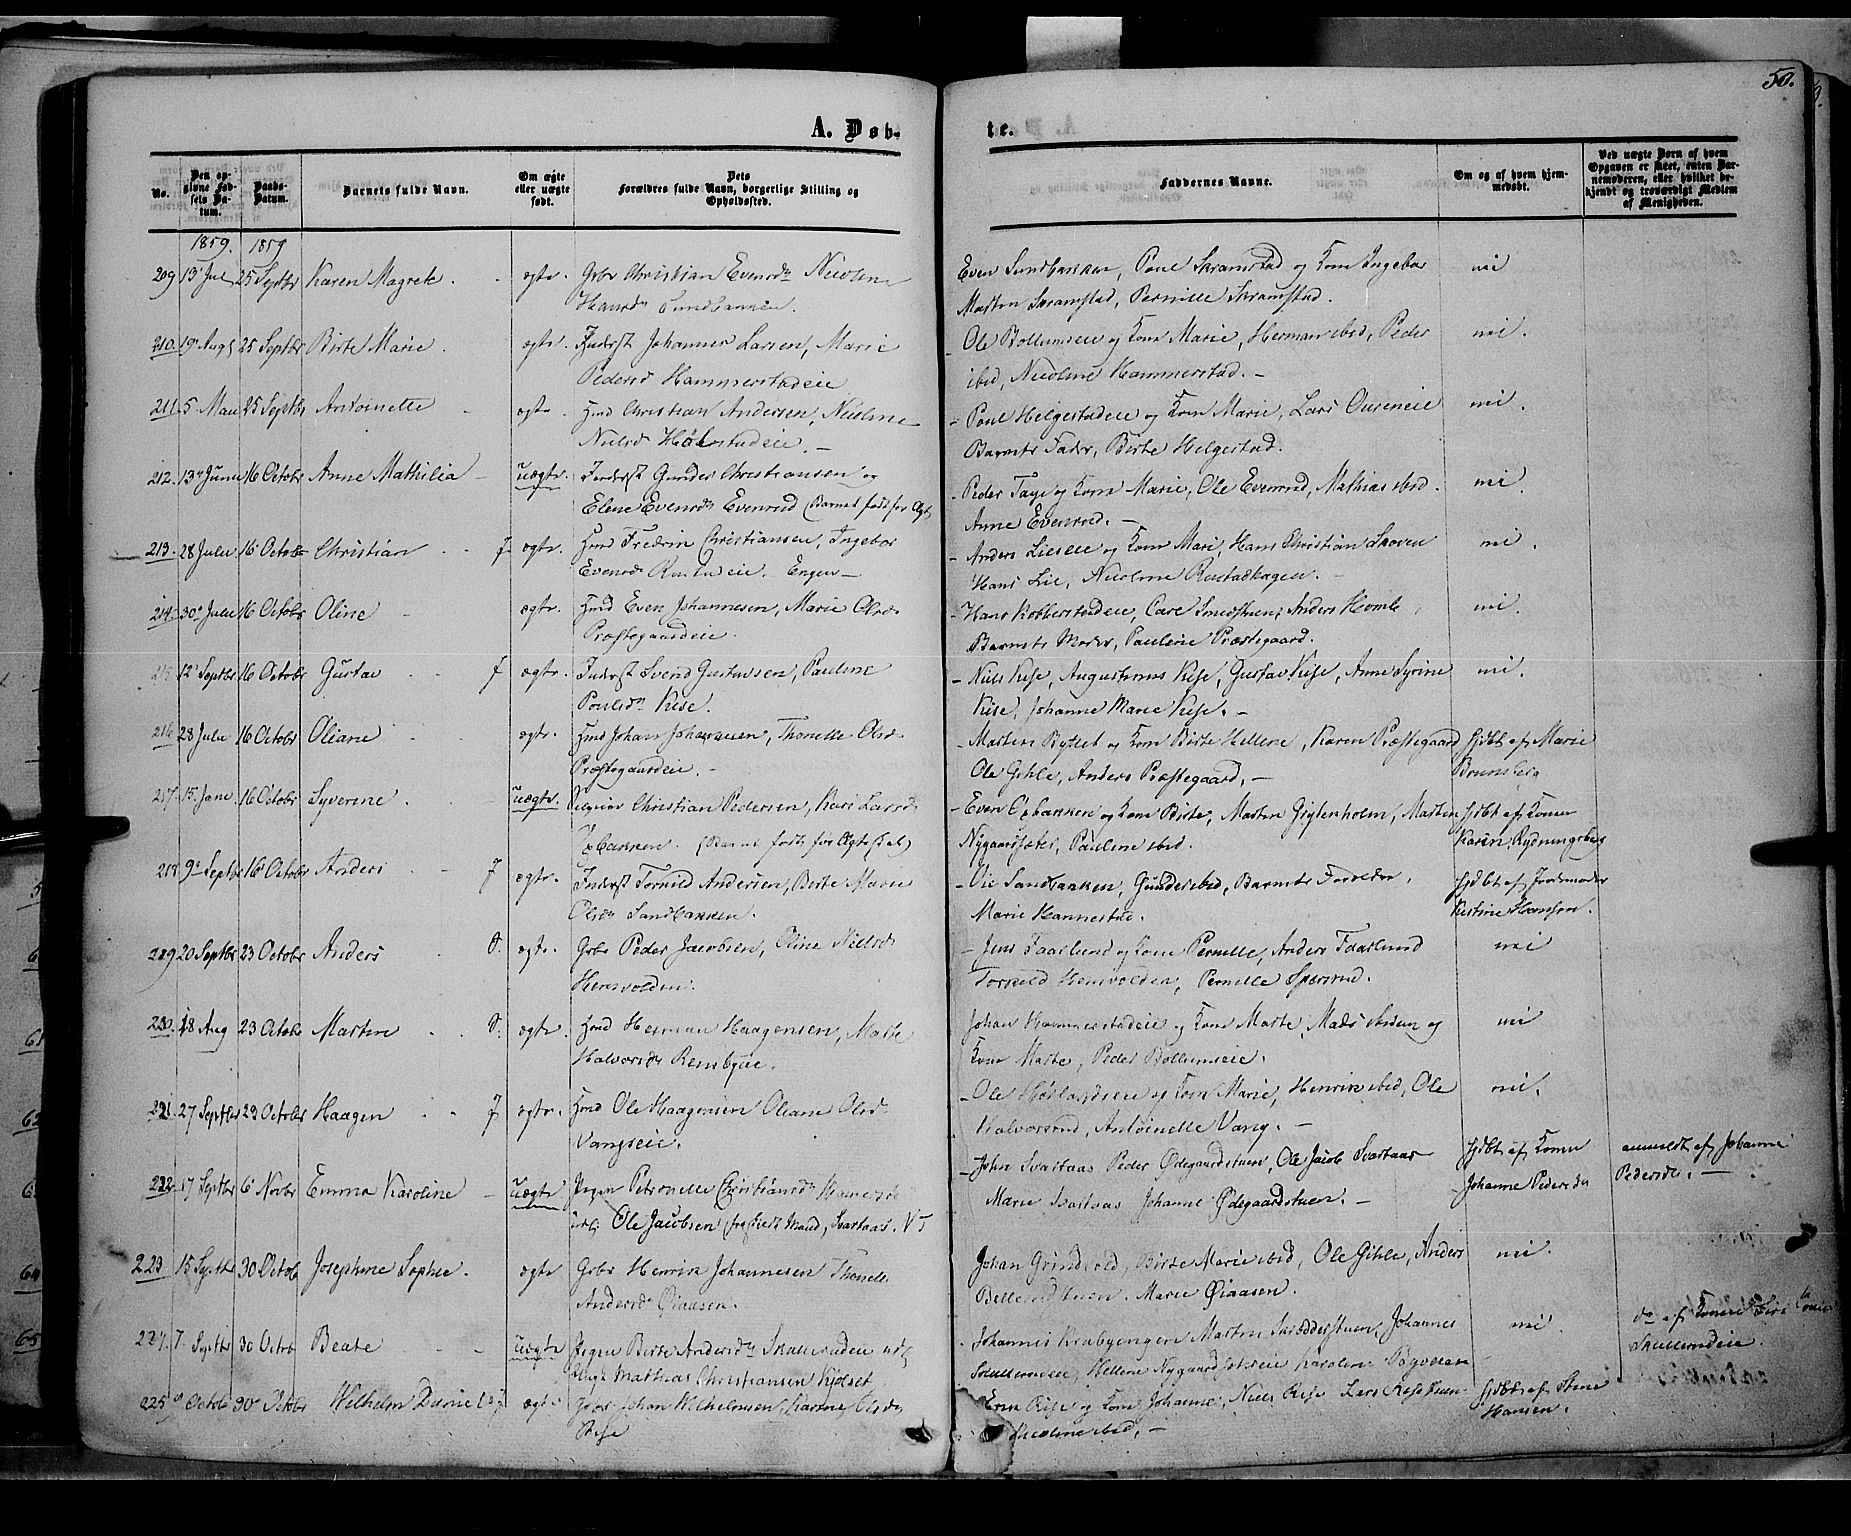 50.
A. Døb-
te.
No.
Den opgivne Fødsels Datum.
Daabs-Datum.
Barnets fulde Navn.
Om ægte eller uægte født.
Dets Forældres fulde Navn, borgerlige Stilling og Opholdssted.
Faddernes Navne.
Om og af hvem hjemmedøbt.
Ved uægte Børn af hvem Opgaven er skeet, enten Barnemoderen, eller hvilket bekjendt og troværdigt Medlem af Menigheden.
1859. 1859
209 13 Jul 25 Septbr Karen Magrete. ægte. Gbr Christian Evensen Nicoline
Hansd Sundbakken.
Even Sundbakken, Poul Skramstad og Kone Ingebor
Marten Skramstad, Pernille Skramstad.
nei
210. 19 Aug 25 Septbr Birte Marie. ægte. Inderst Johannes Larsen, Marie
Pedersd Hammerstadeie
Ole Bollumseie og Kone Marie, Herman ibid, Peder
ibid, Nicoline Hammerstad. -
nei.
211. 5 Mai 25 Septbr Antoinette ægte. Hmd Christian Andersen, Nicoline
Nielsd Hølestadeie. -
- Poul Helgestadeie og Kone Marie, Lars Oureneie
Barnets Fader, Birte Helgestad.
nei.
212. 13 Juni 16 Octobr Anne Mathilia - uægte. Inderst Gunder Christiansen og
Elene Evensd Evenrud (Barnet født før Ægt.
- Peder Taje og Kone Marie, Ole Evenrud, Mathias ibid.
Anne Evenrud. -
nei.
213. 28 Juli 16 Octobr Christian f ægte. Hmd Fredrik Christiansen, Ingebor
Evensd Rustadeie. Engen -
- Anders Lieseie og Kone Mari, Hans Christian Skoven
Hans Lie, Nicoline Rustadhagen. -
nei.
214. 30 Juli 16 Octobr Oline ægte. Hmd Even Johannesen, Marie Olsd
Præstegaardeie.
- Hans Kobberstadeie, Carl Smedstuen, Anders Homle,
Barnets Moder, Pauline Præstegaard.
nei.
215 12 Septbr 16 Octobr Gustav f ægte. Inderst Svend Gustavsen, Pauline
Poulsd Kise.
- Niels Kise, Augustinus Kise, Gustav Kise, Anne Syrine
Kise, Johanne Marie Kise. -
nei.
216 28 Juli 16 Octobr Oliane ægte. Hmd Johan Johansen, Thonette Olsd
Præstegaardeie. -
- Marten Ryllet og Kone Birte Hellene, Karen Præstegaard
Ole Gihle, Anders Præstegaard, -
hjdbt af Marie
Brunsberg
217. 15. Jan 16 Octobr Syverine. uægte. Christian Pedersen, Kari Larsd
(Barnet født før Ægteskab)
- Even og Kone Birte, Marten Gylenholm, Marten
Nygaardsæter, Pauline ibid.
hjdbt af Konen
Karen Rydningsberg
218 9 Septbr 16 Octobr Anders f ægte. Inderst Torkild Andersen, Birte Marie
Olsd Sandbakken.
- Ole Sandbakken, Gunder ibid, Barnets Forældre,
Marie Hannestad.
hjdbt af Jordemoder
Kistine Hansen.
219 20 Septbr 23 Octobr Anders d. ægte. Gbr Peder Jacobsen, Oline Nielsd
Hemvolden.
- Jens Faaslund og Kone Pernille, Anders Faaslund
Torkild Hemvolden, Pernille Sperrud.
nei
220. 18 Aug 23 Octobr Marten d. ægte. Hmd Herman Haagensen, Marte
Halvorsd Rensbyeie.
Johan Hammerstadeie og Kone Marte, Mads Arstun og
Kone Marte, Peder Bollumseie.
nei
221. 27 Septbr 23 Octobr Haagen f ægte. Hmd Ole Haagensen Oliane Olsd
Vangseie.
- Ole Høilandseie og Kone Marie, Henrik ibid, Ole
Halvorsrud, Antoinette Vang. -
nei.
222. 17 Septbr 6 Novbr Emma Karoline - uægte Pigen Petronelle Christiansd
Ole Jacobsen Svartaas.
- John Svartaas Peder Ødegaardstuen, Ole Jacob Svartaas
Marie Svartaas Johanne Ødegaardstuen. -
hjdbt af Konen
Johanne Pedersda
anmeldt af Johanne
Pedersd. -
223 15 Septbr 30 Octob Josephine Sophie. ægte Gbr Henrik Johannesen Thonette
Andersd Øiaasen.
Johan Grindsrud, Birte Marie ibid, Ole Gihle, Anders
Bellerudstuen. Marie Øiaasen.
nei.
224. 7 Septbr 30 Octob Beate uægte Pigen Birte Andersd Skullerudeie
Mathias Christiansen Kjølset
Johannes Krabyengen Marten Skrædderstuen, Johannes
Skullerudeie, Hellene Nygaardsæterie Karoline
nei
do af Konen
Skullerudeie.
225 Octob 30 Octobr Wilhelm Daniel f ægte Gbr Johan Wilhelmsen, Karine Olsd
Kise
Erik Kise og Kone Johanne, Niels Kise Lars Kisestuen
Nicoline ibid, -
hjdbt af Stine
Hansen.